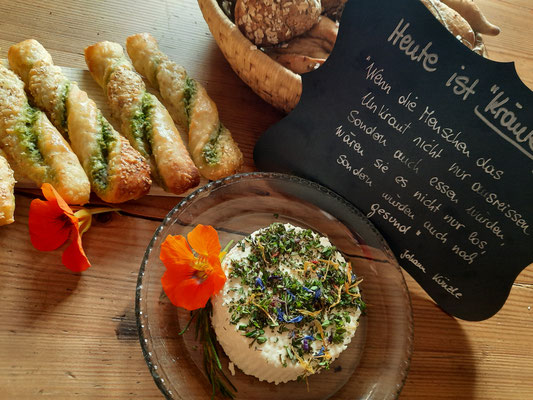 Heute ist "Kräu
"Wenn die Menschen das
Unkraut nicht nur ausreissen
Sondern auch essen würden,
wären sie es nicht nur los,
Sondern würden auch noch
gesund"
Johann Künzle